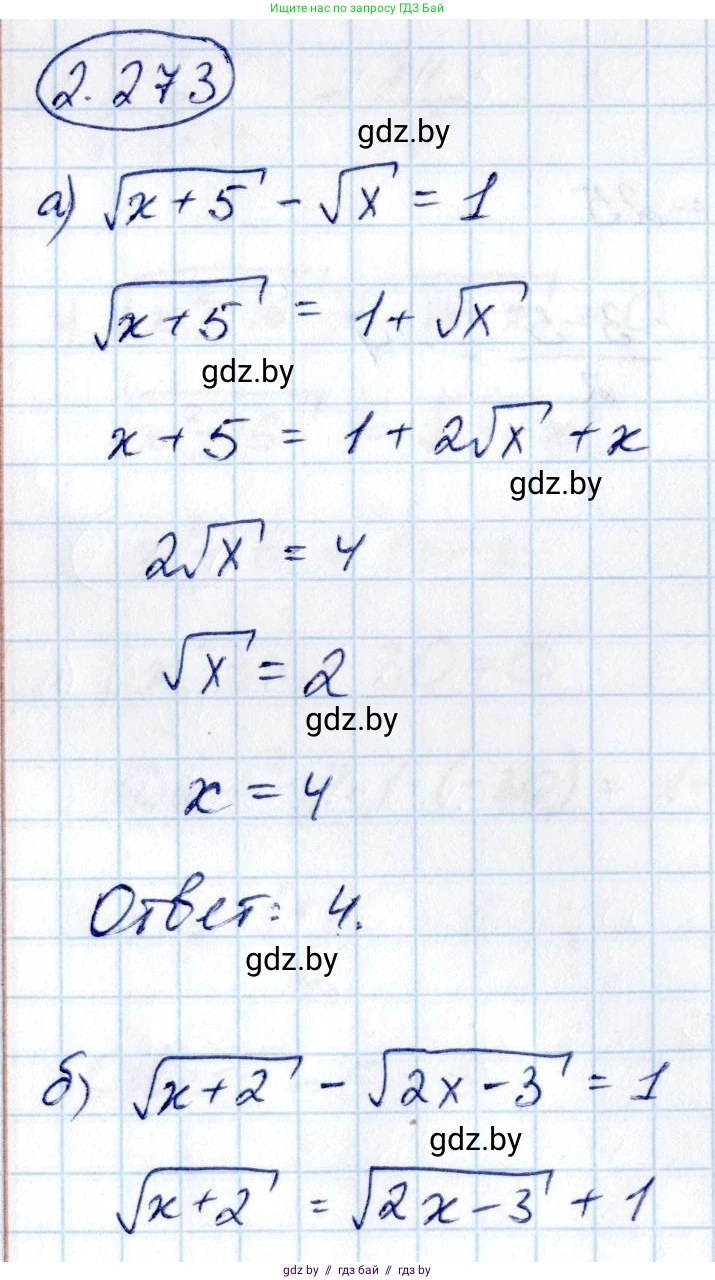 Ищите нас по запросу ГДЗ Бай
2.273
gdz.by
а) √(x+5) - √x = 1
√(x+5) = 1+√x
gdz.by
x+5 = 1+2√x+x
gdz.by
2√x = 4
√x = 2
gdz.by
x = 4
Ответ: 4.
gdz.by
б) √(x+2) - √(2x-3) = 1
gdz.by
√(x+2) = √(2x-3) + 1
gdz.by // гдз бай // гдз.by